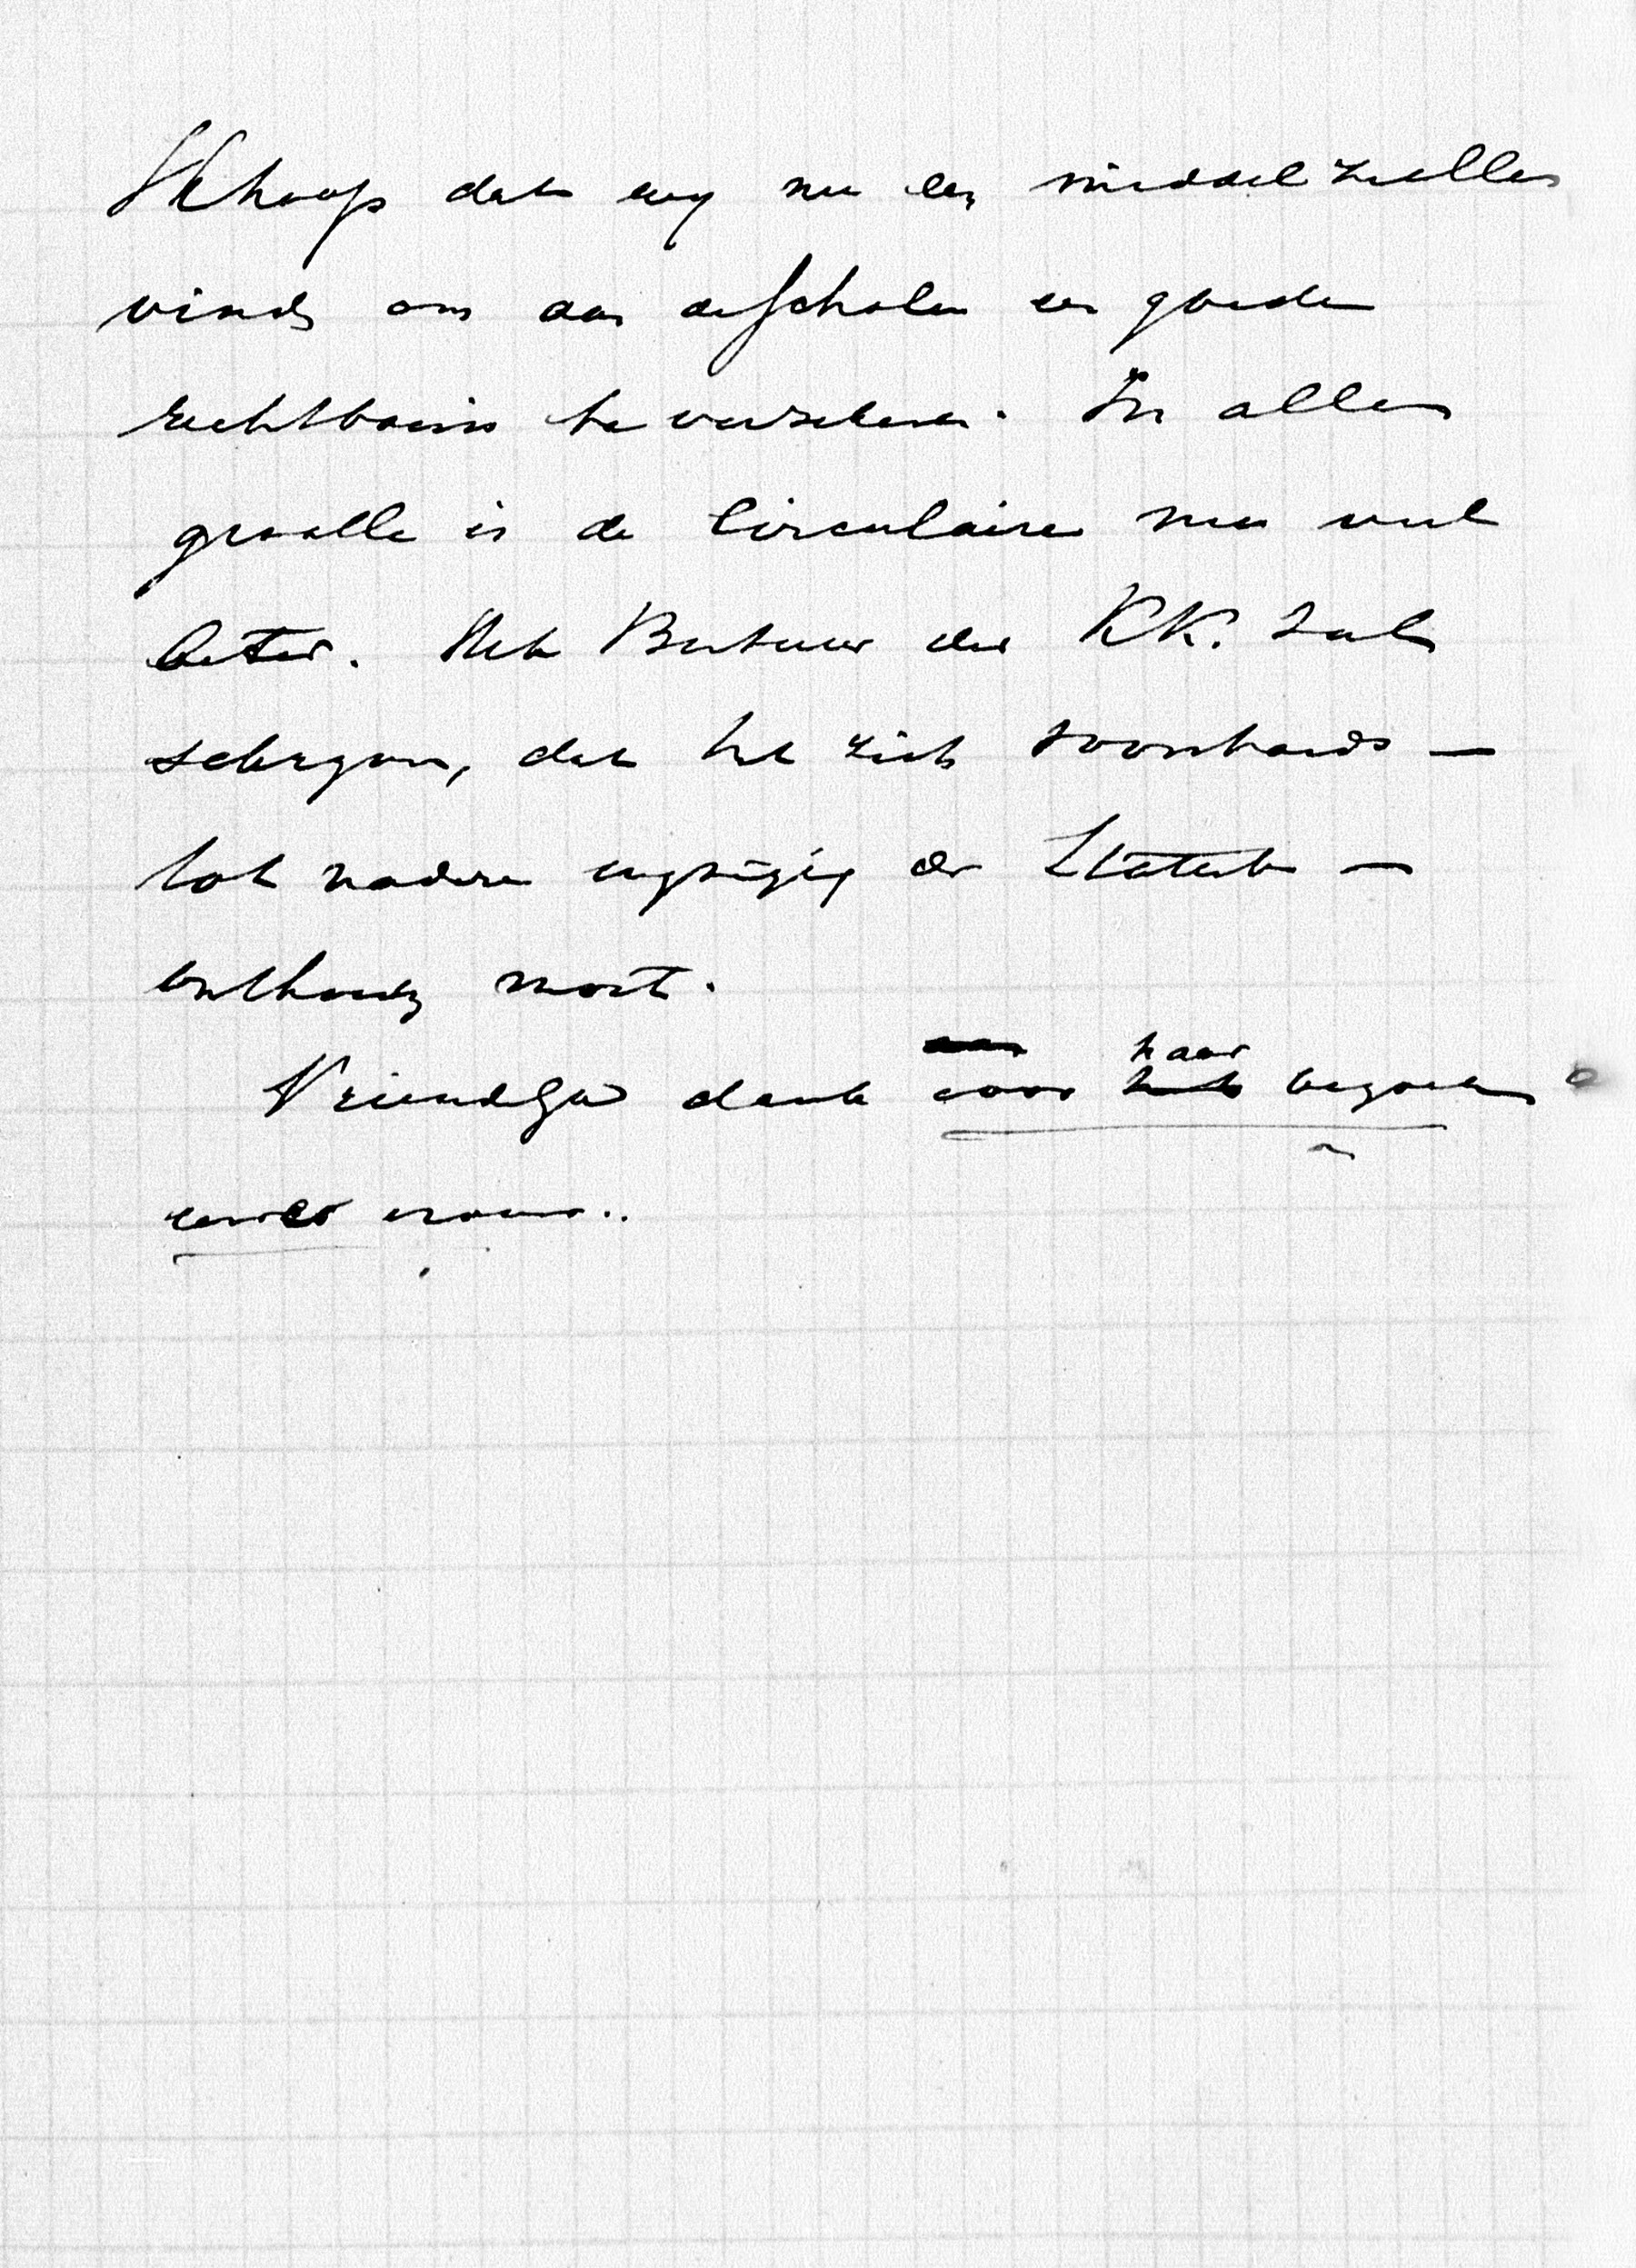 Ik hoop dat wij nu een middel zullen
vinden om aan de scholen een goede
rechtbasis te verzekeren. In allen
gevalle is de Circulaire nu veel
beter. Het Bestuur der KK. zal
schrijven, dat het zich voorshands —
tot nadere wijziging der Statuten —
onthouden moet.
Vriendelijk dank voor haar bezoek
uwer vrouw..